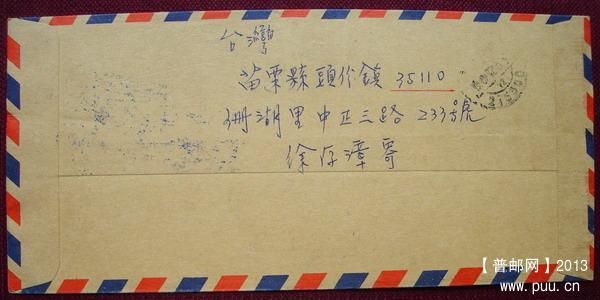 台灣
苗栗縣頭份鎮 35110
珊湖里中正三路 233號
徐存漳寄
【普邮网】2013
www.puu.cn